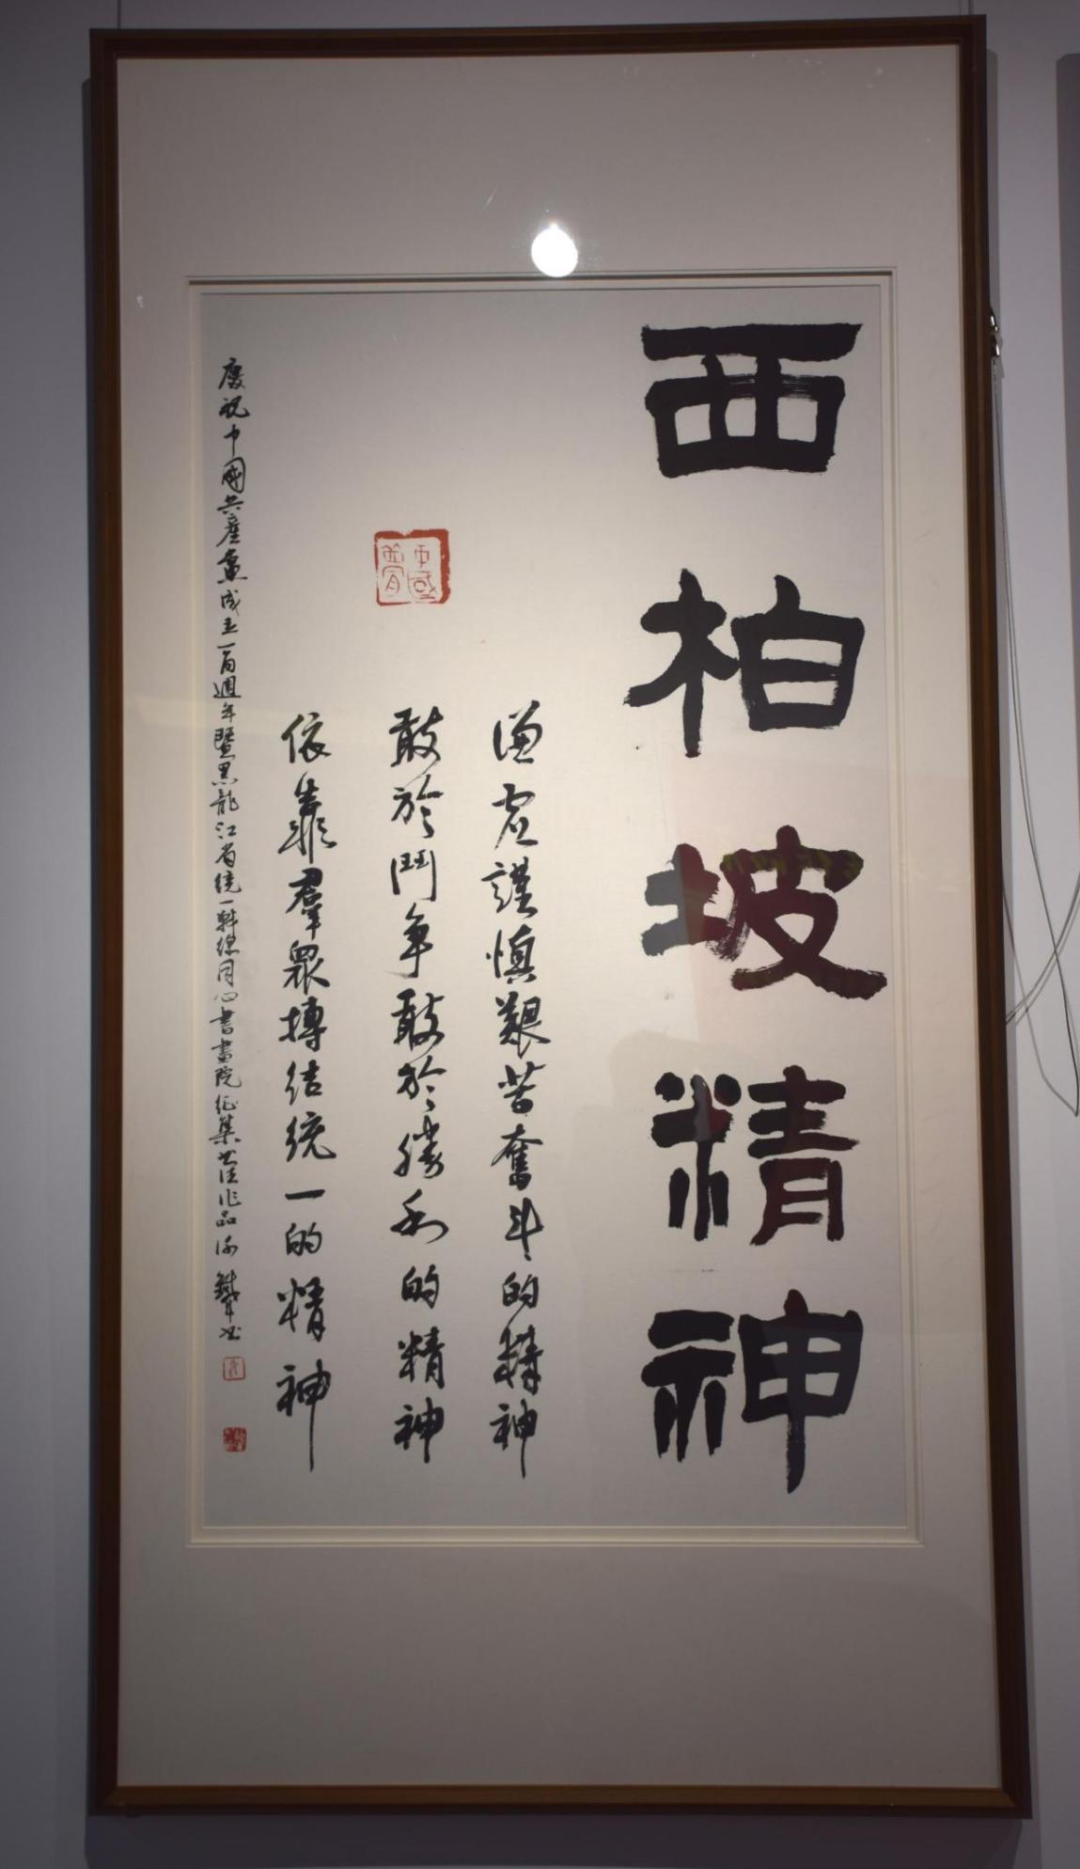 西柏坡精神
谦虚谨慎艱苦奮斗的精神
敢於鬥争敢於勝利的精神
依靠羣眾搏结统一的精神
慶祝中國共産党成立一百週年暨黑龍江省统一戰缐同心書畫院征集书法作品
中國